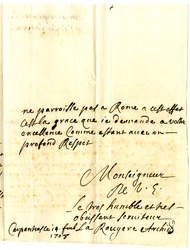 ne parroille pas a Rome a cest effet
cest la grace que ie demande a vostre
excellence Comme estant avec un
profond Respet
Monseigneur
De V. E.
Le tres humble et tres
obeissant serviteur
Carpentras ce 14
La Rouyere Archid.
1705